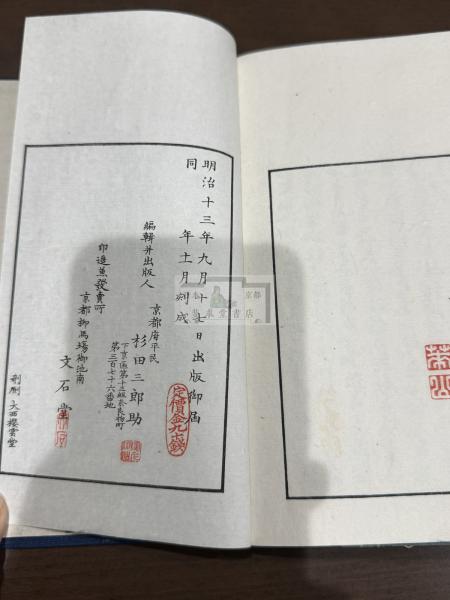 明治十三年九月十七日出版御届
同年十一月刻成
編輯并出版人
京都府平民
杉田三郎助
下京區第十三組奈良物町
第三百七十六番地
定價金九十錢
印造兼發賣所
京都柳馬場御池南
文石堂
剞劂 大西櫻雲堂
京都
書店